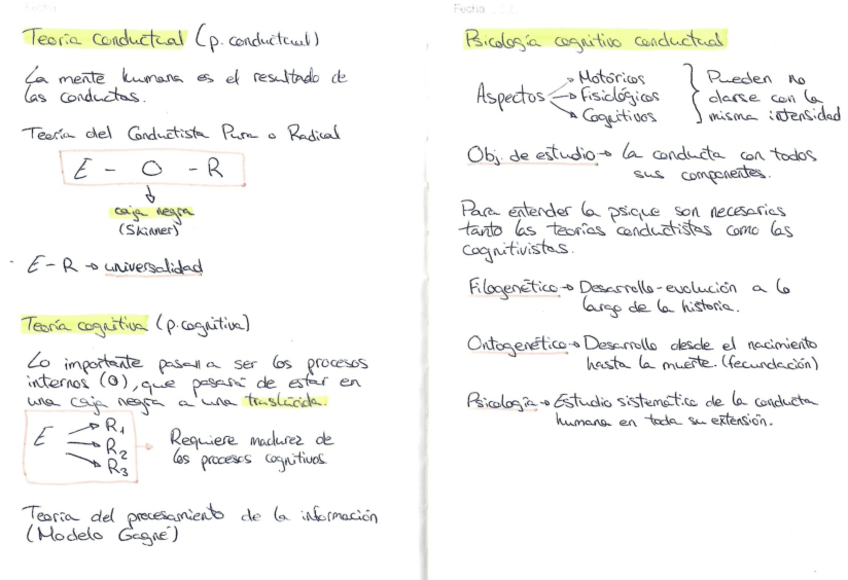 Fecha
Teoría conductual (p. conductual)
La mente humana es el resultado de
las conductas.
Teoría del Conductista Pura o Radical
E - O - R
caja negra
(Skinner)
E-R → universalidad
Teoría cognitiva (p. cognitiva)
Lo importante pasa a ser los procesos
internos (O), que pasará de estar en
una caja negra a una traslúcida.
E → R1
→ R2
→ R3
→ Requiere madurez de
los procesos cognitivos
Teoría del procesamiento de la información
(Modelo Gagné)
Fecha
Psicología cognitivo conductual
Aspectos → Motóricos
→ Fisiológicos
→ Cognitivos
} Pueden no
darse con la
misma intensidad
Obj. de estudio → la conducta con todos
sus componentes.
Para entender la psique son necesarias
tanto las teorías conductistas como las
cognitivistas.
Filogenético → Desarrollo-evolución a lo
largo de la historia.
Ontogenético → Desarrollo desde el nacimiento
hasta la muerte. (fecundación)
Psicología → Estudio sistemático de la conducta
humana en toda su extensión.